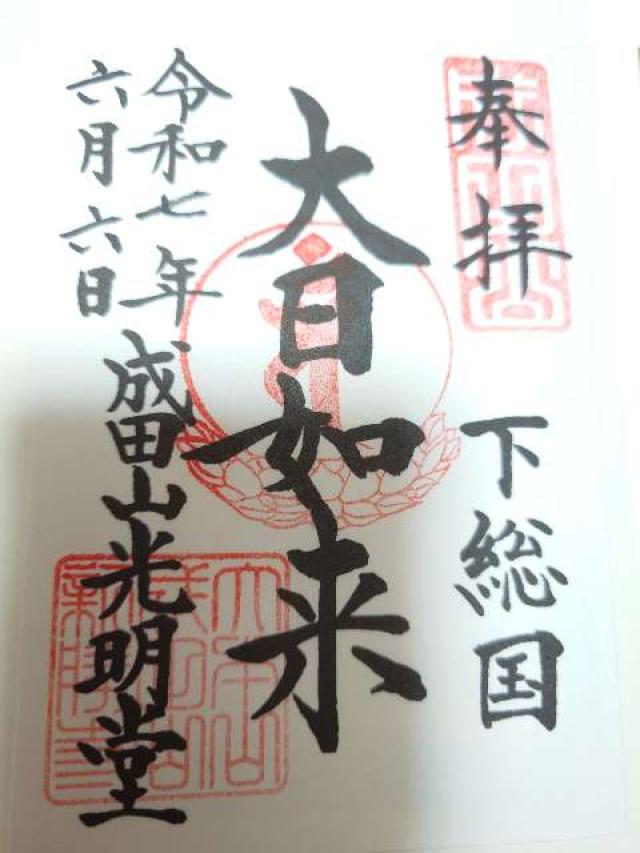 奉拝
下総国
大日如来
令和七年
六月六日
成田山光明堂